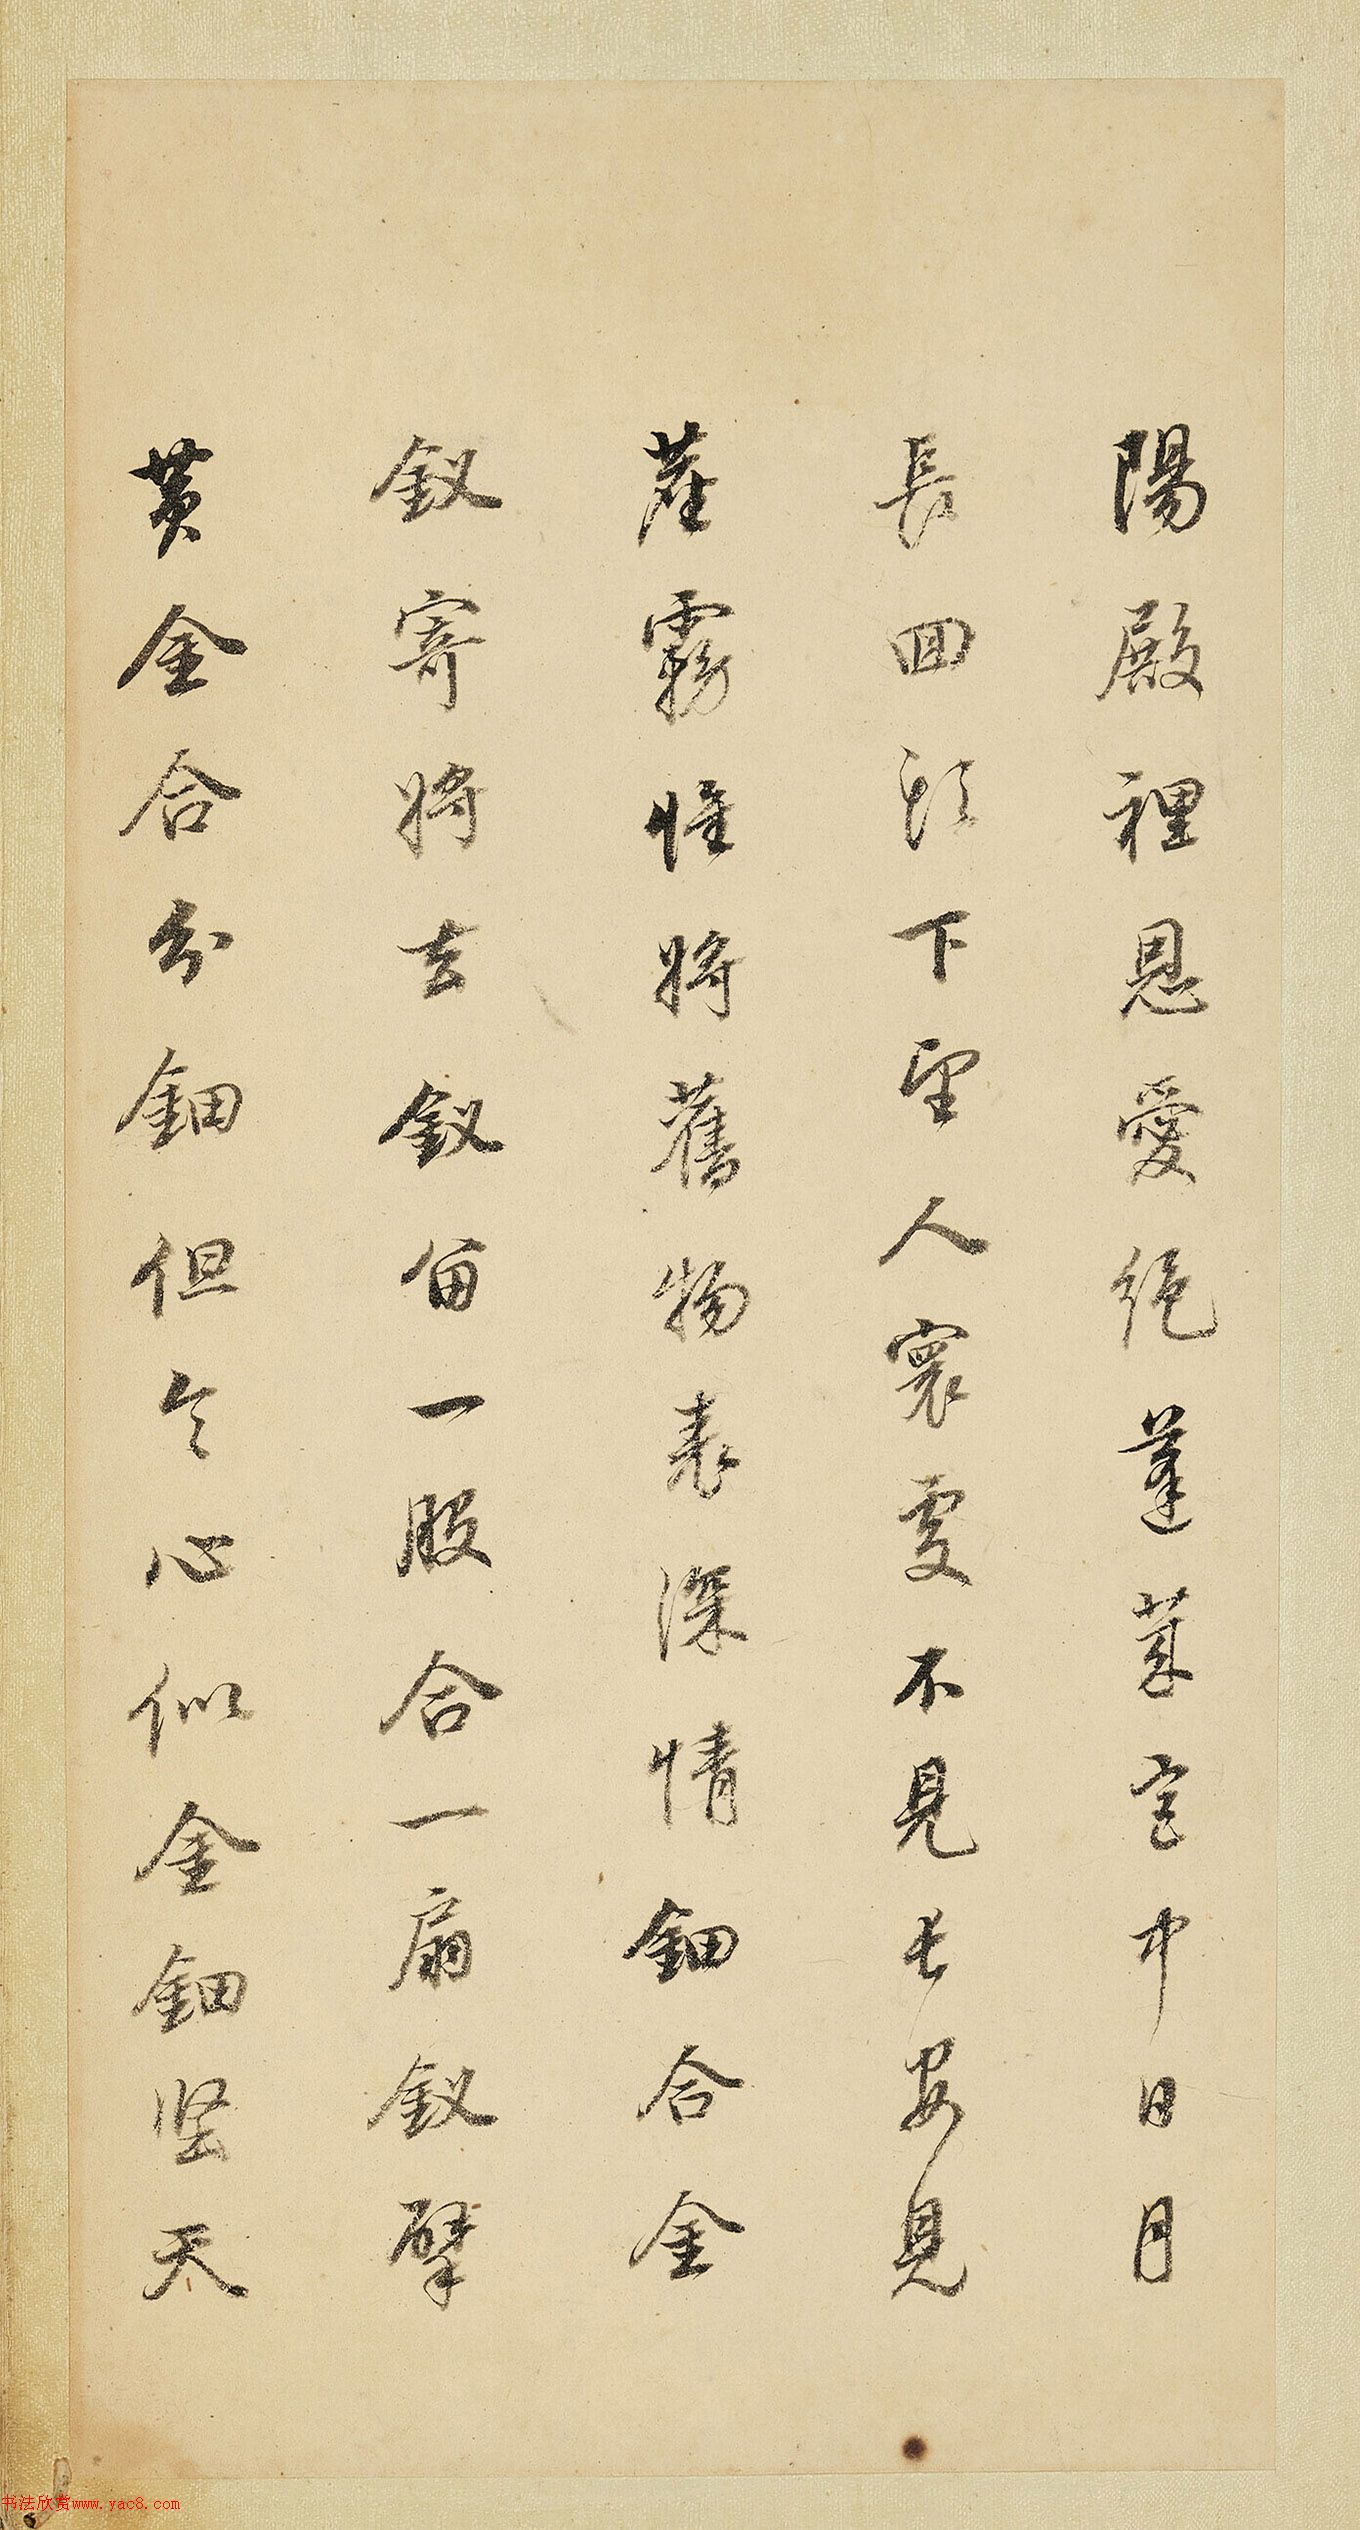 陽殿裡恩愛絕蓬萊宮中日月
長回頭下望人寰處不見長安見
塵霧惟將舊物表深情鈿合金
釵寄將去釵留一股合一扇釵擘
黃金合分鈿但令心似金鈿堅天
书法欣赏www.yac8.com